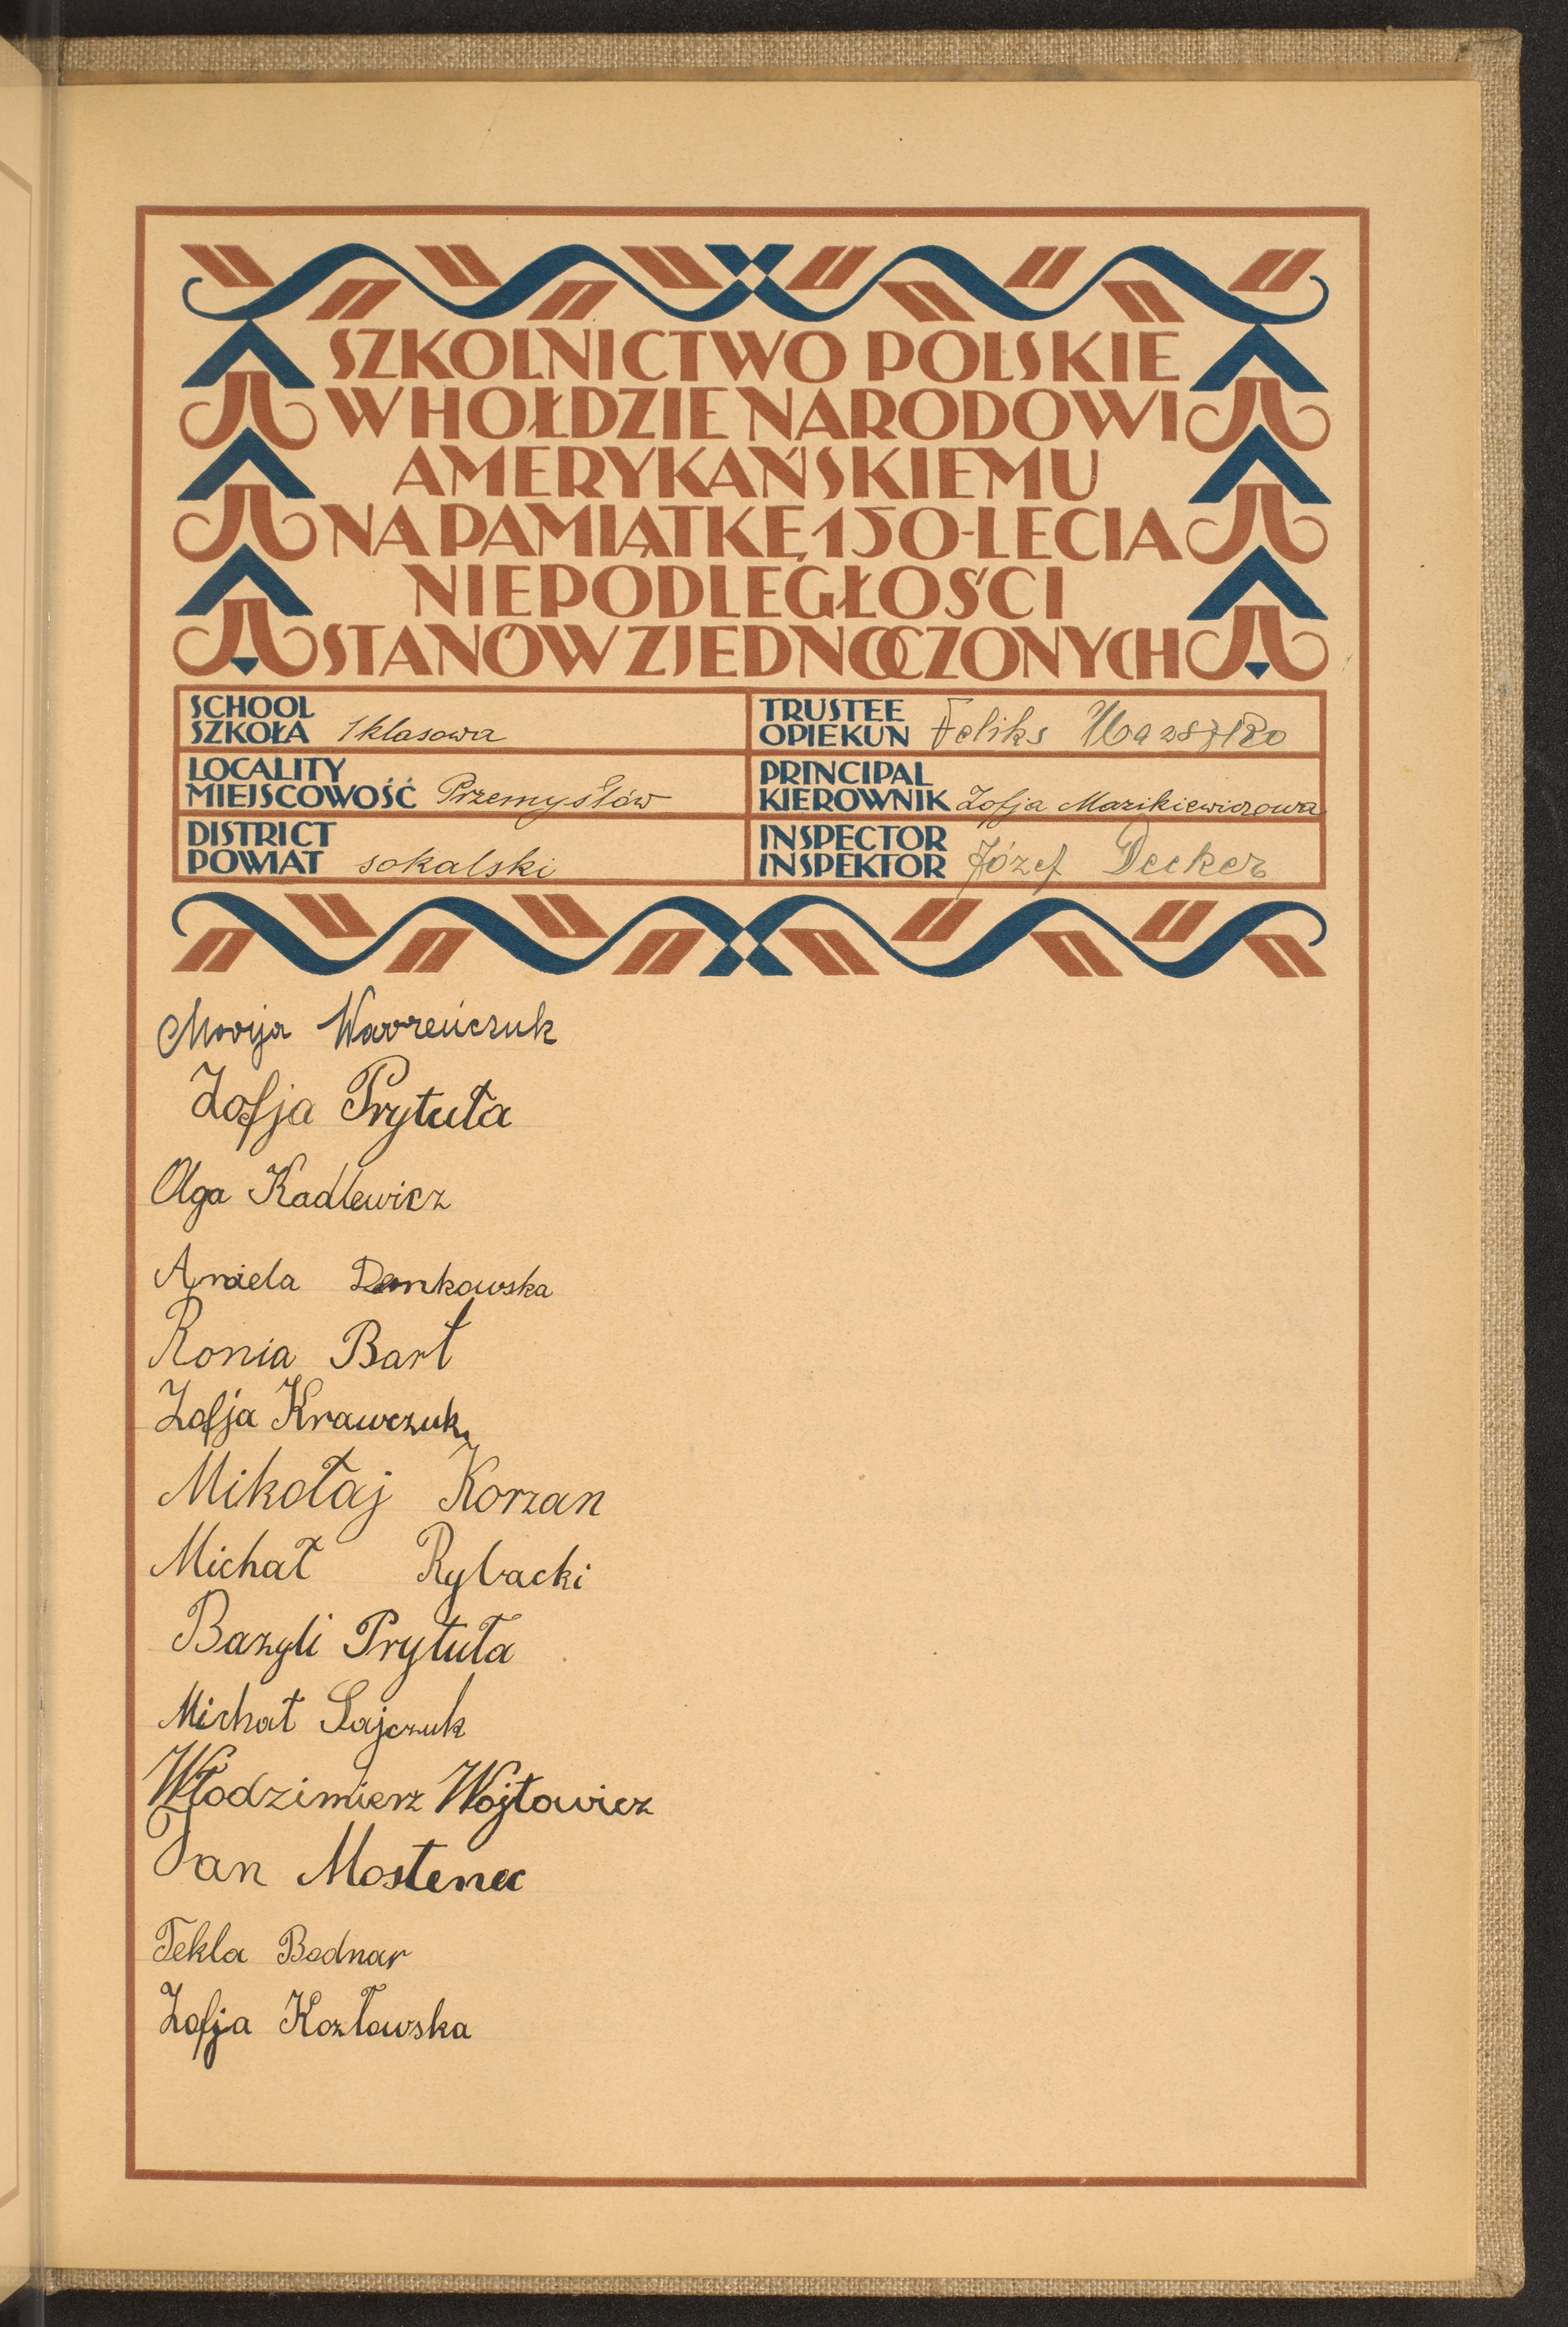 SZKOLNICTWO POLSKIE
W HOŁDZIE NARODOWI
AMERYKAŃSKIEMU
NA PAMIĄTKĘ 150-LECIA
NIEPODLEGŁOŚCI
STANÓW ZJEDNOCZONYCH
SCHOOL
SZKOŁA 1 klasowa
TRUSTEE
OPIEKUN Feliks
LOCALITY
MIEJSCOWOŚĆ Przemysłów
PRINCIPAL
KIEROWNIK Zofja Mazikiewiczowa
DISTRICT
POWIAT sokalski
INSPECTOR
INSPEKTOR Józef Decker
Marja Wawreńczuk
Zofja Prytuła
Olga Kadlewicz
Aniela Dankowska
Ronia Bart
Zofja Krawczuk
Mikołaj Korzan
Michał Rybacki
Bazyli Prytuła
Michał Sajczuk
Włodzimierz Wojtowicz
Jan Mostenec
Tekla Bodnar
Zofja Kozłowska